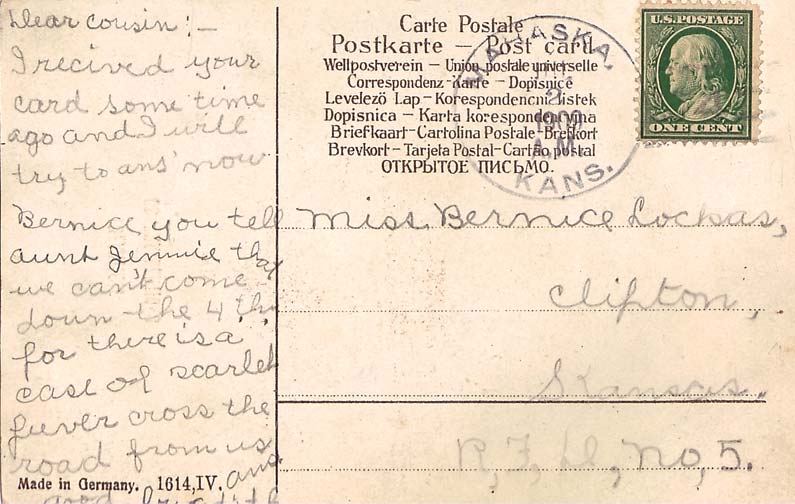 Dear cousin:-
I recived your
card some time
ago and I will
try to ans' now
Bernice you tell
aunt Jennie that
we can't come
down the 4 th
for there is a
case of scarlet
fever cross the
road from us
ans.
good
Made in Germany. 1614,IV.
Carte Postale
Postkarte — Post card
Weltpostverein - Union postale universelle
Correspondenz-Karte - Dopisnice
Levelező Lap - Korespondencni listek
Dopisnica - Karta korespondencyjna
Briefkaart - Cartolina Postale - Brefkort
Brevkort - Tarjeta Postal - Cartão postal
ОТКРЫТОЕ ПИСЬМО.
MAHASKA,
2
1909
A.M.
KANS.
U.S. POSTAGE
ONE CENT
Miss Bernice Lockas,
Clifton,
Kansas.
R, F, D, No, 5.